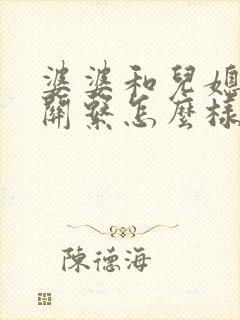 婆婆和兒媳
關繫怎麼樣
陳德海